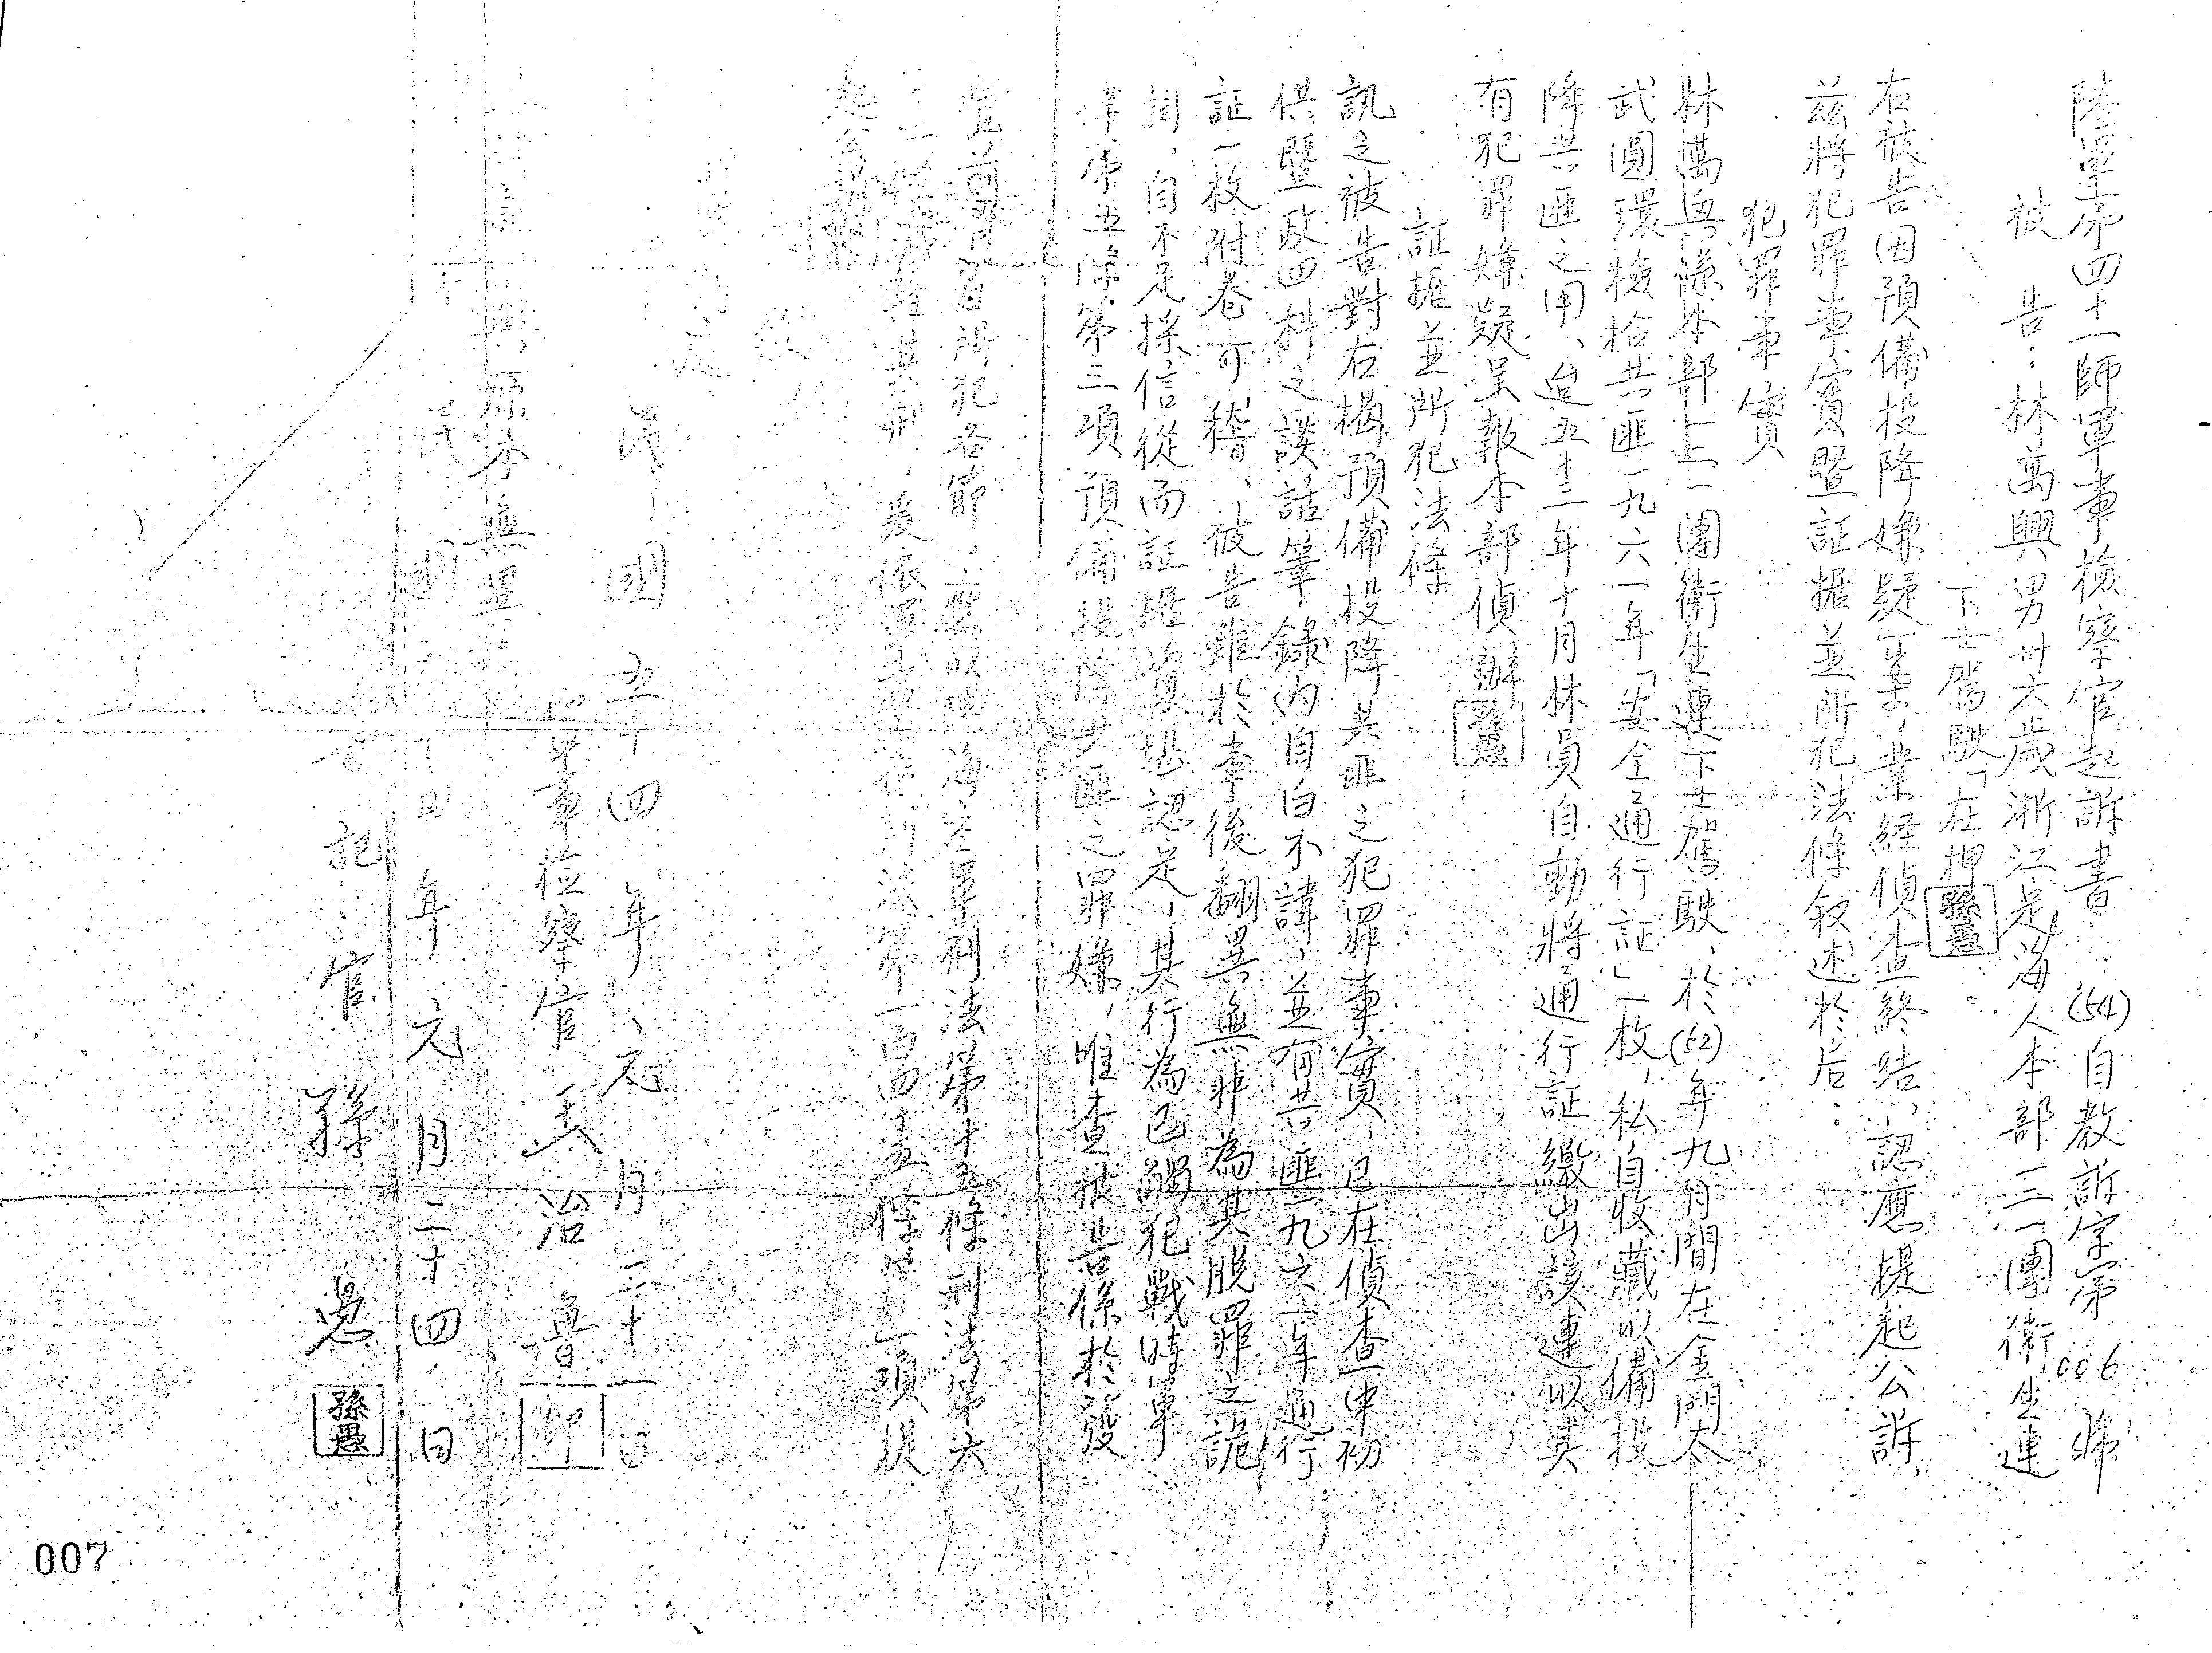 陸軍第四十一師軍事檢察官起訴書 (54)自教訴字第006號
被告:林萬興男卅六歲浙江定海人本部一二一團衛生連
下士駕駛「在押 孫愚
右被告因預備投降嫌疑乙案,業経偵查終結、認應提起公訴
茲將犯罪事實暨証據並所犯法條叙述於后:
犯罪事實
林萬興係本部一二一團衛生連下士駕駛、於(52)年九月間在金門太
武圓環檢拾共匪一九六一年「安全通行証」一枚,私自收藏以備投
降共匪之用、迨五十二年十月林員自動將通行証繳出該連以其
有犯罪嫌疑呈報本部偵辦 孫愚
証據並所犯法條
訊之被告對右揭預備投降共匪之犯罪事實、已在偵查中初
供暨政四科之談話筆錄內自白不諱,並有共匪一九六一年通行
証一枚附卷可稽、被告雖於事後翻異無非為其脫罪之詭
詞、自不足採信從而証據資堪認定,其行為已觸犯戰時軍
律第五條第三項預備投降共匪之罪嫌,唯查被告係於發
覺前自首所犯各節,應以陸海空軍刑法第十五條刑法第六
十二條減輕其刑,爰依軍事審判法第一百四十五條第一項提
起公訴
此致
民國五十四年元月二十一日
軍事檢察官 治魯
與原本無異
民國 年元月二十四日
書記官 孫愚 孫愚
007